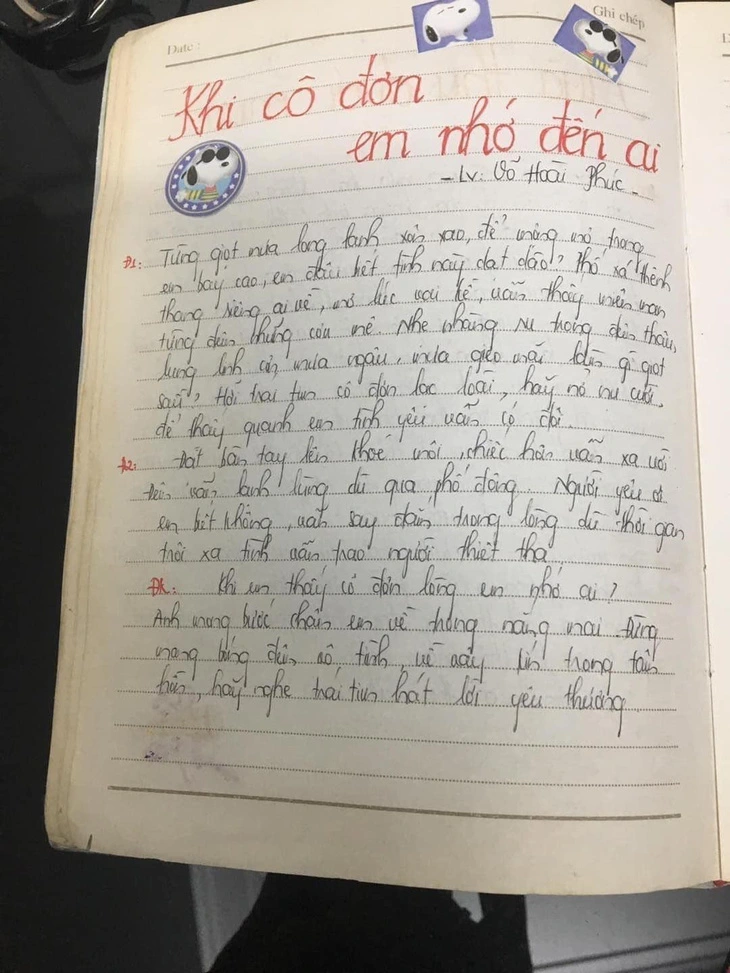 Ghi chép
Date :
Khi cô đơn
em nhớ đến ai
- Lv: Võ Hoài Phúc -
Đ1: Từng giọt mưa long lanh xôn xao, để mộng mơ trong
em bay cao, em đâu biết tình này dạt dào? Phố xá thênh
thang riêng ai về, mơ lúc vai kề, vẫn thấy miên man
từng đêm những cơn mê. Nhẹ nhàng ru trong đêm thâu,
lung linh cơn mưa ngâu, mưa gieo mãi lên gì giọt
sầu? Hỡi trái tim cô đơn lạc loài, hãy nở nụ cười,
để thấy quanh em tình yêu vẫn có đôi.
Đ2: Đặt bàn tay lên khoé môi, chiếc hôn vẫn xa vời
Đêm vẫn lạnh lùng dù qua phố đông. Người yêu ơi
em biết không, vẫn say đắm trong lòng dù thời gian
trôi xa tình vẫn trao người thiết tha.
ĐK: Khi em thấy cô đơn lòng em nhớ ai?
Anh mong bước chân em về trong nắng mai. Đừng
mang bóng đêm vô tình, về vây kín trong tâm
hồn, hãy nghe trái tim hát lời yêu thương.